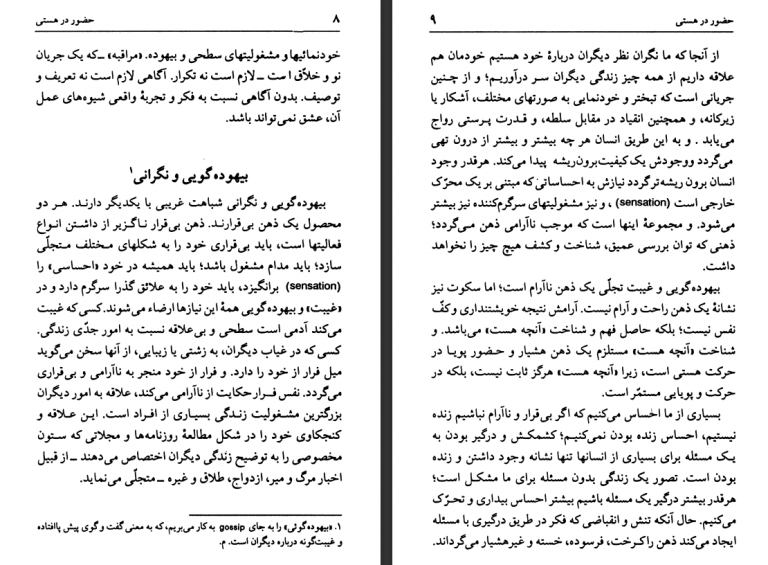 ۸ حضور در هستی
خودنمائیها و مشغولیتهای سطحی و بیهوده. «مراقبه» ـ که یک جریان
نو و خلاّق است ـ لازم است نه تکرار. آگاهی لازم است نه تعریف و
توصیف. بدون آگاهی نسبت به فکر و تجربهٔ واقعی شیوه‌های عمل
آن، عشق نمی‌تواند باشد.
بیهوده‌گویی و نگرانی۱
بیهوده‌گویی و نگرانی شباهت غریبی با یکدیگر دارند. هر دو
محصول یک ذهن بی‌قرارند. ذهن بی‌قرار ناگزیر از داشتن انواع
فعالیتها است، باید بی‌قراری خود را به شکلهای مختلف متجلّی
سازد؛ باید مدام مشغول باشد؛ باید همیشه در خود «احساسی» را
(sensation) برانگیزد، باید خود را به علائق گذرا سرگرم دارد و در
«غیبت» و بیهوده‌گویی همهٔ این نیازها ارضاء می‌شوند. کسی که غیبت
می‌کند آدمی است سطحی و بی‌علاقه نسبت به امور جدّی زندگی.
کسی که در غیاب دیگران، به زشتی یا زیبایی، از آنها سخن می‌گوید
میل فرار از خود را دارد. و فرار از خود منجر به ناآرامی و بی‌قراری
می‌گردد. نفس فرار حکایت از ناآرامی می‌کند، علاقه به امور دیگران
بزرگترین مشغولیت زندگی بسیاری از افراد است. این علاقه و
کنجکاوی خود را در شکل مطالعهٔ روزنامه‌ها و مجلاتی که ستون
مخصوصی را به توضیح زندگی دیگران اختصاص می‌دهند ـ از قبیل
اخبار مرگ و میر، ازدواج، طلاق و غیره ـ متجلّی می‌نماید.
۱. «بیهوده‌گوئی» را به جای gossip به کار می‌بریم، که به معنی گفت و گوی پیش پاافتاده
و غیبت‌گونه درباره دیگران است. م.
۹ حضور در هستی
از آنجا که ما نگران نظر دیگران دربارهٔ خود هستیم خودمان هم
علاقه داریم از همه چیز زندگی دیگران سر درآوریم؛ و از چنین
جریانی است که تبختر و خودنمایی به صورتهای مختلف، آشکار یا
زیرکانه، و همچنین انقیاد در مقابل سلطه، و قدرت پرستی رواج
می‌یابد. و به این طریق انسان هر چه بیشتر و بیشتر از درون تهی
می‌گردد ووجودش یک کیفیت‌برون‌ریشه پیدا می‌کند. هرقدر وجود
انسان برون ریشه‌ترگردد نیازش به احساساتی‌که مبتنی بر یک محرّک
خارجی است (sensation) ، و نیز مشغولیتهای سرگرم‌کننده نیز بیشتر
می‌شود. و مجموعهٔ اینها است که موجب ناآرامی ذهن می‌گردد؛
ذهنی که توان بررسی عمیق، شناخت و کشف هیچ چیز را نخواهد
داشت.
بیهوده‌گویی و غیبت تجلّی یک ذهن ناآرام است؛ اما سکوت نیز
نشانهٔ یک ذهن راحت و آرام نیست. آرامش نتیجه خویشتنداری و کفّ
نفس نیست؛ بلکه حاصل فهم و شناخت «آنچه هست» می‌باشد. و
شناخت «آنچه هست» مستلزم یک ذهن هشیار و حضور پویا در
حرکت هستی است، زیرا «آنچه هست» هرگز ثابت نیست، بلکه در
حرکت و پویایی مستمّر است.
بسیاری از ما احساس می‌کنیم که اگر بی‌قرار و ناآرام نباشیم زنده
نیستیم، احساس زنده بودن نمی‌کنیم؛ کشمکش و درگیر بودن به
یک مسئله برای بسیاری از انسانها تنها نشانه وجود داشتن و زنده
بودن است. تصور یک زندگی بدون مسئله برای ما مشکل است؛
هرقدر بیشتر درگیر یک مسئله باشیم بیشتر احساس بیداری و تحرّک
می‌کنیم. حال آنکه تنش و انقباضی که فکر در طریق درگیری با مسئله
ایجاد می‌کند ذهن را کرخت، فرسوده، خسته و غیرهشیار می‌گرداند.